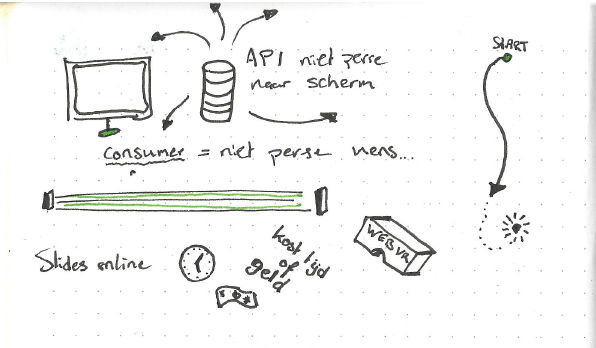 API niet perse
naar scherm
START
consumer = niet perse mens...
Slides online
kost tijd
of
geld
WEBVR